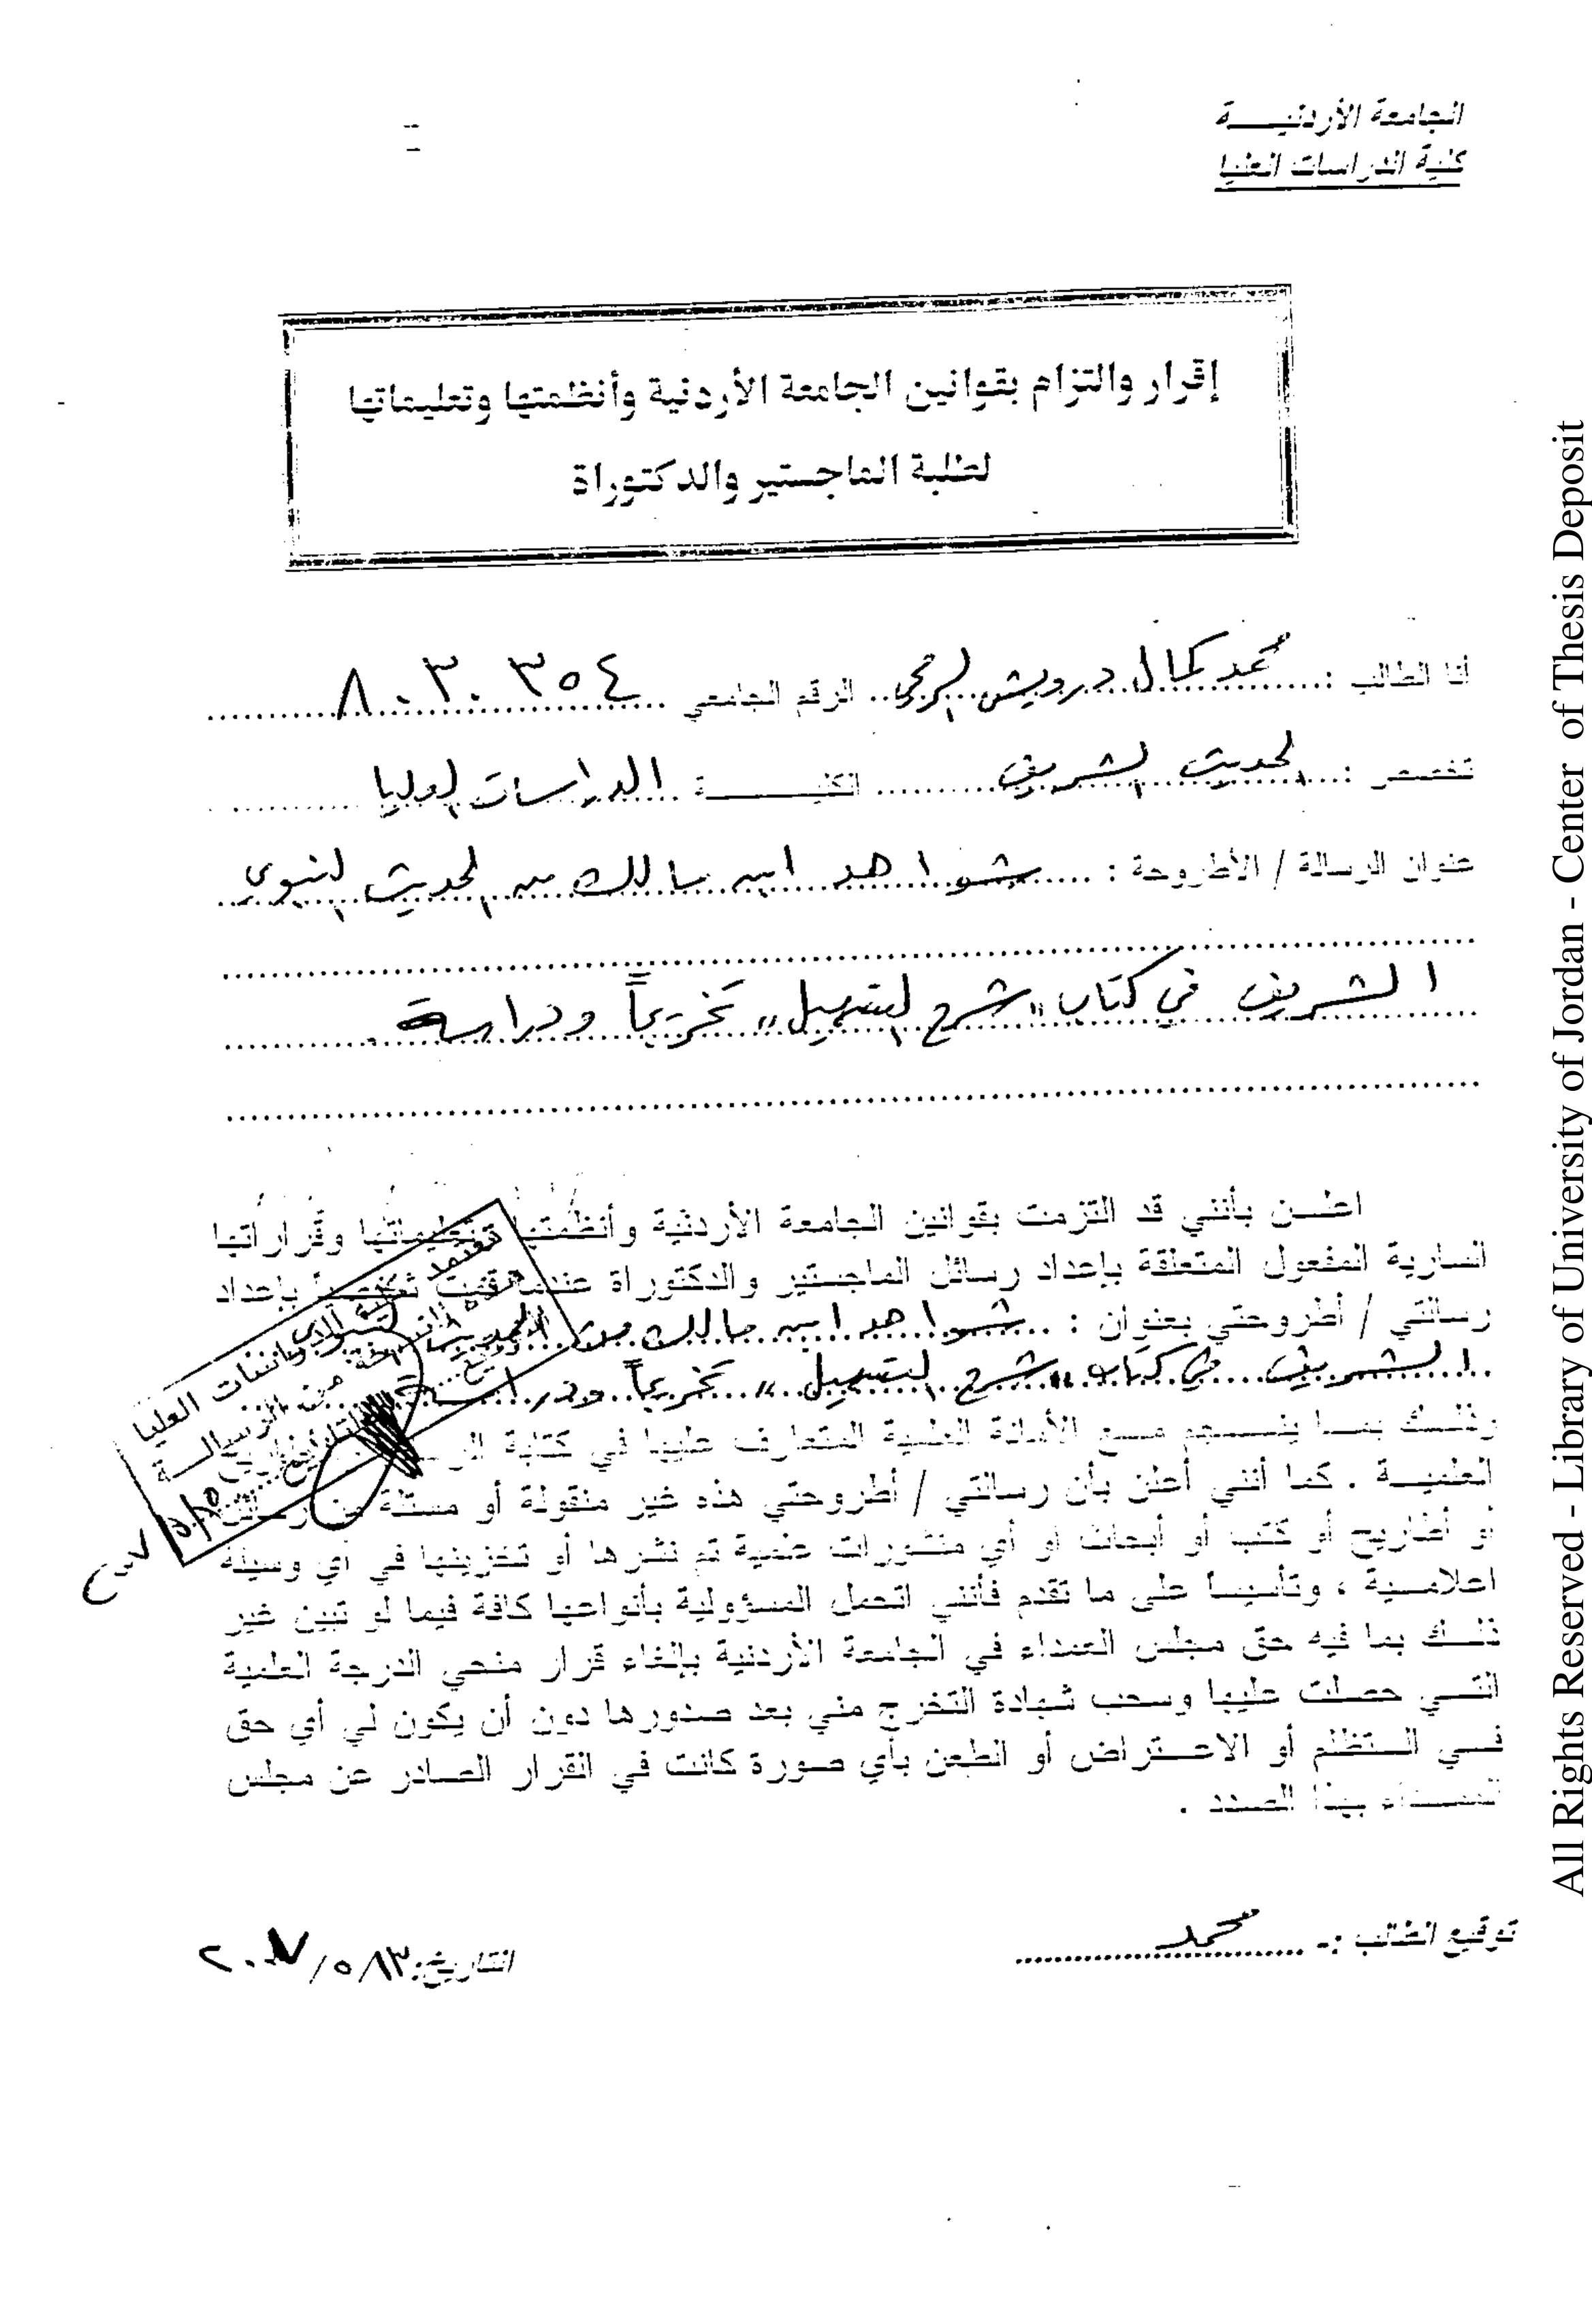 الجامعة الأردنيـــة
كلية الدراسات العليا
إقرار والتزام بقوانين الجامعة الأردنية وأنظمتها وتعليماتها
لطلبة الماجستير والدكتوراة
أنا الطالب : محمد كمال درويش الرمحي الرقم الجامعي ٨٠٣٠٣٥٤
تخصص : الحديث الشريف الكليـــــة الدراسات العليا
عنوان الرسالة / الأطروحة : شواهد ابن مالك من الحديث النبوي
الشريف في كتاب "شرح التسهيل" تخريجاً ودراسة.
اعلــن بأنني قد التزمت بقوانين الجامعة الأردنية وأنظمتها وتعليماتها وقراراتها
السارية المفعول المتعلقة بإعداد رسائل الماجستير والدكتوراة عندما قمت شخصياً بإعداد
رسالتي / أطروحتي بعنوان : شواهد ابن مالك من الحديث
الشريف في كتاب "شرح التسهيل" تخريجاً ودراسة
وذلــك بمــا ينســجم مــع الأمانة العلمية المتعارف عليها في كتابة
العلميــة . كما أنني أعلن بأن رسالتي / أطروحتي هذه غير منقولة أو مستلة من رسائل
أو أطاريح أو كتب أو أبحاث أو أي منشورات علمية تم نشرها أو تخزينها في أي وسيلة
اعلامــية ، وتأسيساً على ما تقدم فأنني اتحمل المسؤولية بأنواعها كافة فيما لو تبين غير
ذلــك بما فيه حق مجلس العمداء في الجامعة الأردنية بإلغاء قرار منحي الدرجة العلمية
التــي حصلت عليها وسحب شهادة التخرج مني بعد صدورها دون أن يكون لي أي حق
فــي الــتظلم أو الاعــتراض أو الطعن بأي صورة كانت في القرار الصادر عن مجلس
العمــداء بهذا الصدد .
تعتمد كلية الدراسات العليا
هذه النسخة من الرسالــة
التوقيع التاريخ
توقيع الطالب :- محمد
التاريخ: ١٣/ ٥/ ٢٠٠٧
All Rights Reserved - Library of University of Jordan - Center of Thesis Deposit